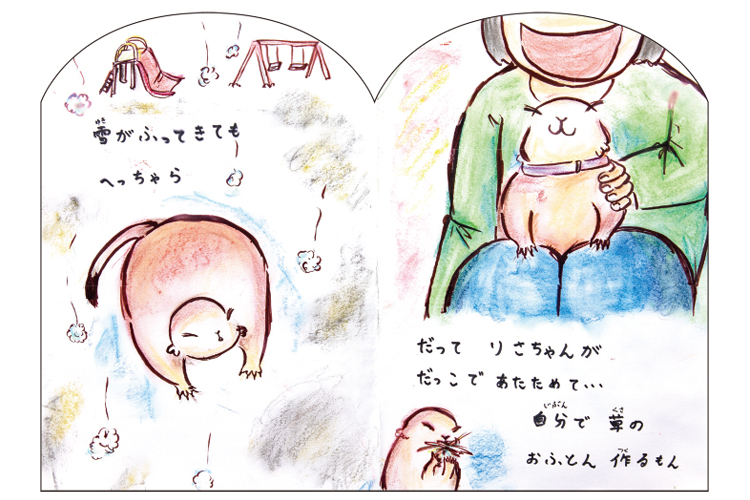 雪がふってきても
へっちゃら
だって りさちゃんが
だっこで あたためて・・・
自分で 草の
おふとん 作るもん